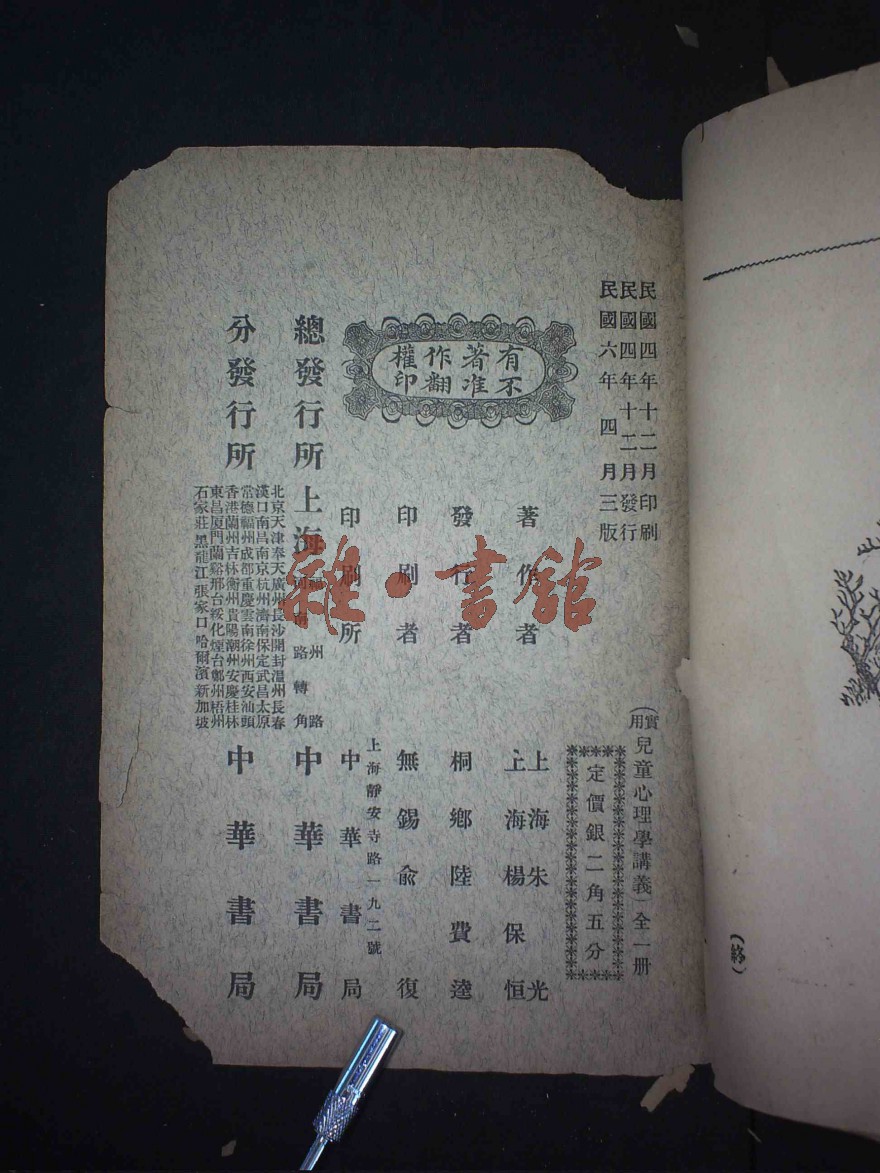 民國四年十二月印刷
民國四年十二月發行
民國六年四月三版
(實用)兒童心理學講義)全一册
定價銀二角五分
有著作權
不准翻印
著作者
上海朱光
上海楊保恒
發行者
桐鄉陸費逵
印刷者
無錫俞復
印刷所
上海靜安寺路一九二號
中華書局
總發行所
上海
州路
南路轉角
中華書局
分發行所
北京天津奉天廣州長沙開封溫州長春
漢口南昌南京杭州濟南保定武昌太原
常德福州成都重慶雲南徐州西安汕頭
香港蘭州吉林衡州貴陽潮州安慶桂林
東昌厦門蘭谿邢台綏化煙台鄭州梧州
石家莊黑龍江張家口哈爾濱新加坡
中華書局
(終)
雜·書館